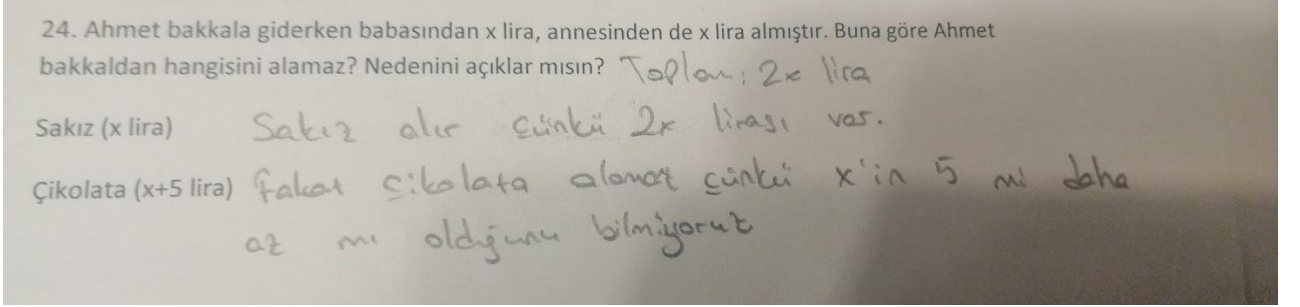 24. Ahmet bakkala giderken babasından x lira, annesinden de x lira almıştır. Buna göre Ahmet
bakkaldan hangisini alamaz? Nedenini açıklar mısın? Toplam: 2x lira
Sakız (x lira) Sakız alır çünkü 2x lirası var.
Çikolata (x+5 lira) fakat çikolata alamaz çünkü x'in 5 mi daha
az mı olduğunu bilmiyoruz